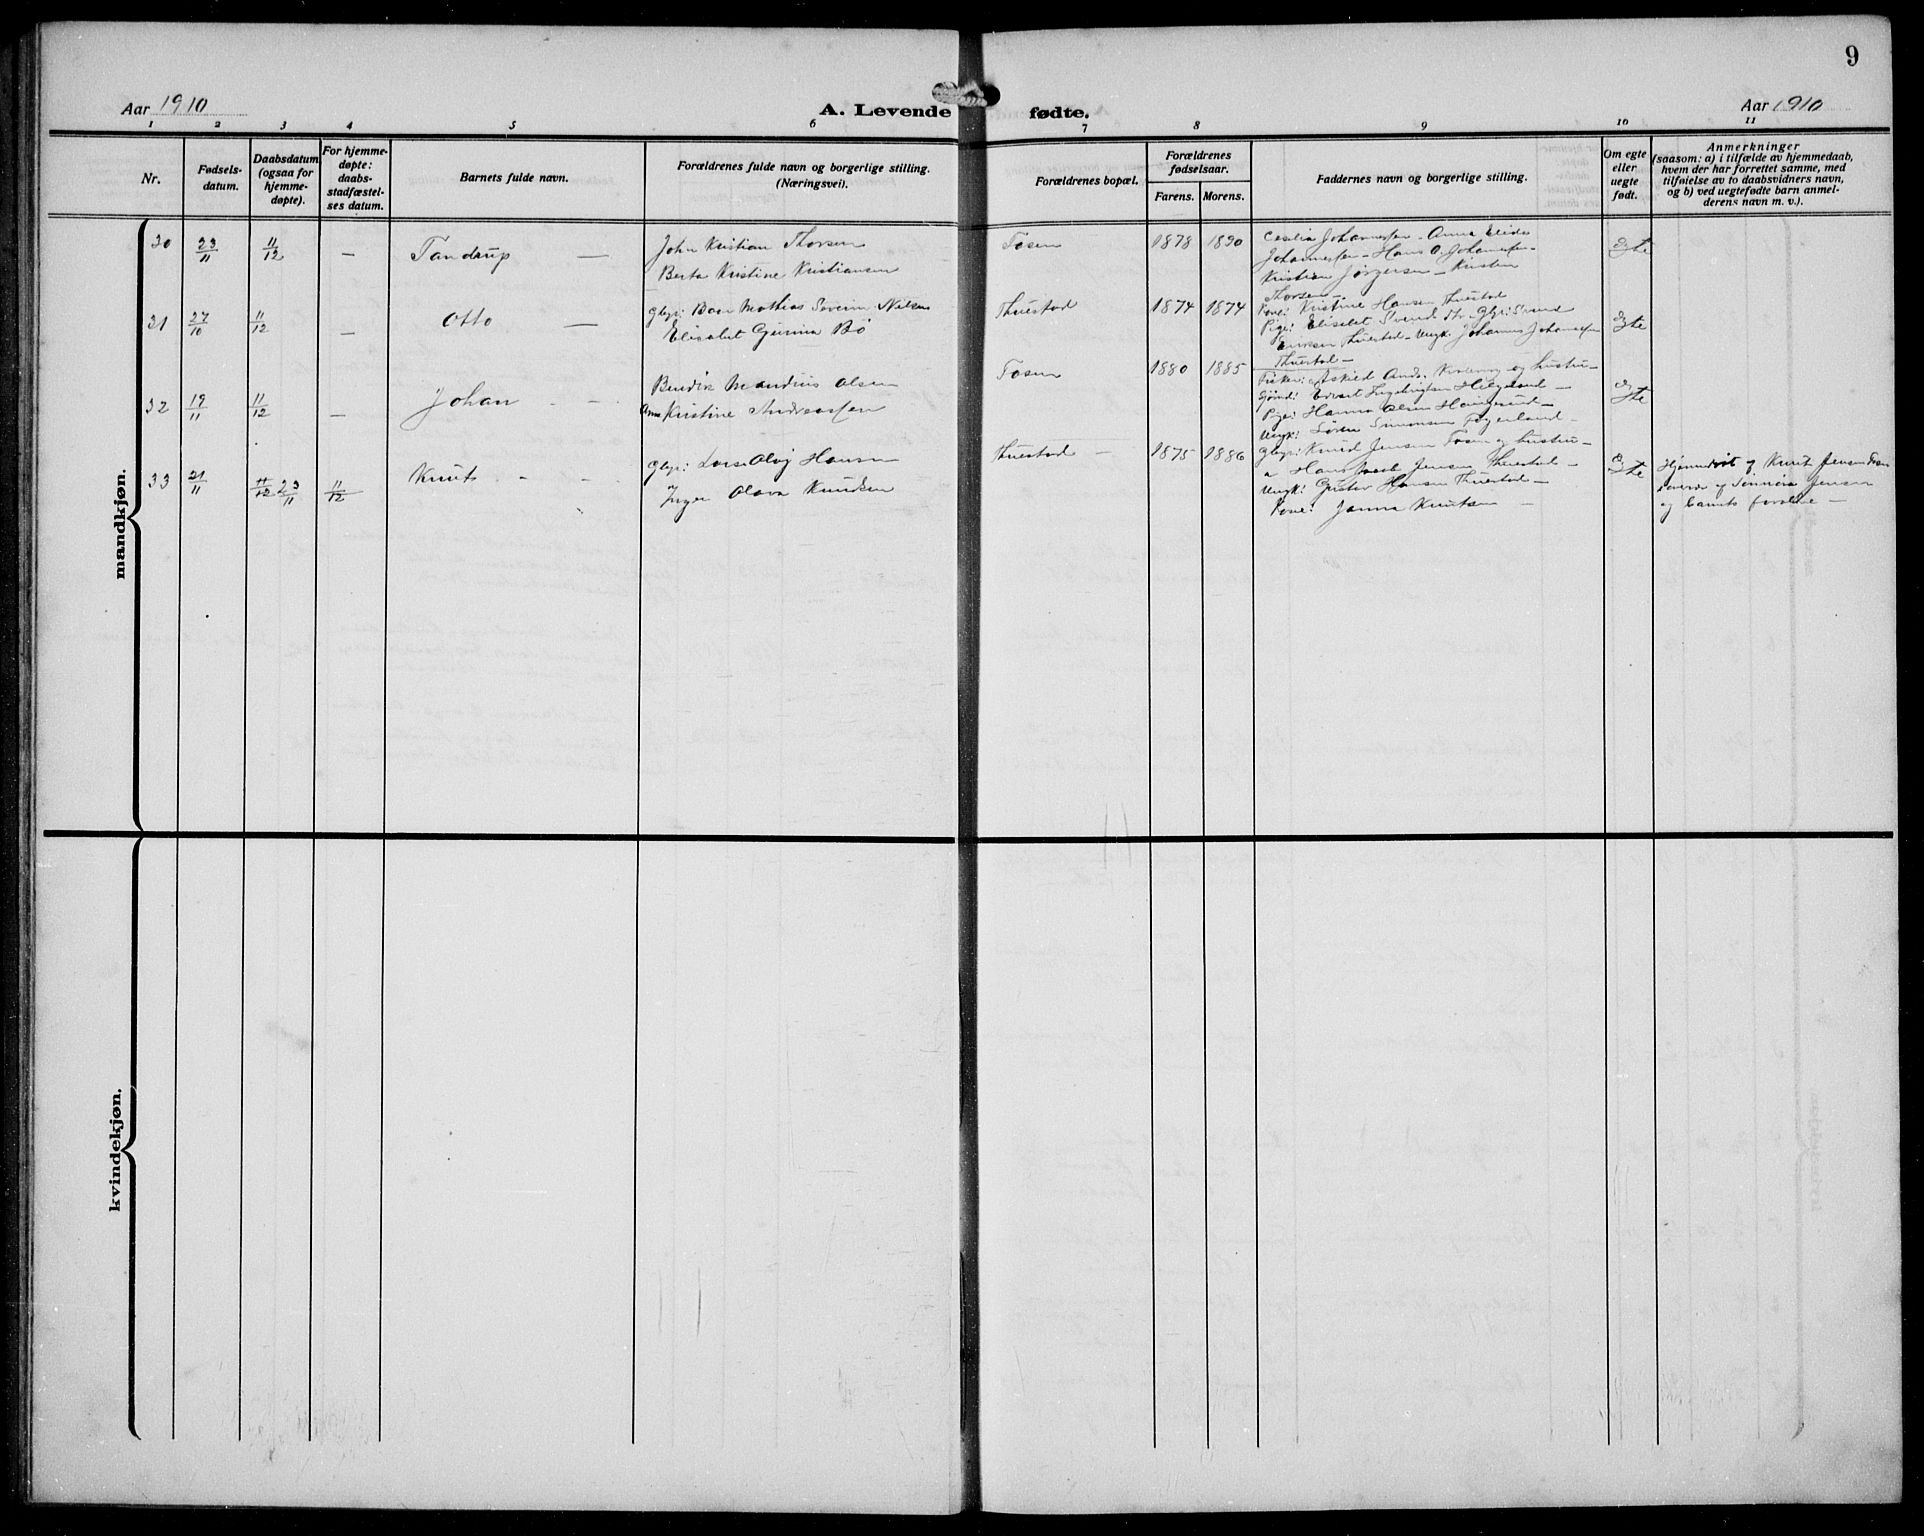 9
Aar 1910
A. Levende fødte.
Aar 1910
1 2 3 4 5 6 7 8 9 10 11
Nr.
Fødsels-
datum.
Daabsdatum
(ogsaa for
hjemme-
døpte).
For hjemme-
døpte:
daabs-
stadfæstel-
ses datum.
Barnets fulde navn.
Forældrenes fulde navn og borgerlige stilling.
(Næringsvei).
Forældrenes bopæl.
Forældrenes
fødselsaar.
Farens. Morens.
Faddernes navn og borgerlige stilling.
Om egte
eller
uegte
født.
Anmerkninger
(saasom: a) i tilfælde av hjemmedaab,
hvem der har forrettet samme, med
tilføielse av to daabsvidners navn,
og b) ved uegtefødte barn anmel-
derens navn m. v.).
mandkjøn.
30 23/11 11/12 — Tandrup —
John Kristian Thorsen
Berta Kristine Kristiansen
Fosen 1878 1890
Cesilia Johannessen - Anna Elida
Johannessen - Hans O. Johannessen -
Kristian Jørgensen - Kristen
Thorsen -
Egte
31 27/10 11/12 — Otto —
Mathias Severin Nilsen
Elisabet Gurina Bø
Thuestad 1874 1874
Kone: Kristine Hansen Thuestad
Pige: Elisabet Svends Gbr: Svend
Eriksen Thuestad - Ungk: Johannes Johannessen
Thuestad -
Egte
32 19/11 11/12 — Johan - -
Bendik Mandius Olsen
Anna Kristine Andreassen
Fosen 1880 1885
Fisker: Askild Ands. og hustru -
Pige: Hanna Olsen Haugesund -
Ungk: Sören Simonsen Fæerland -
Egte
33 21/11 11/12 23/11 11/12 Knut - -
Olaj Hansen
Inger Olava Knudsen
Thuestad - 1875 1886
Knud Jensen Fosen og hustru -
Hans Jensen Thuestad -
Ungk: Gustav Hansen Thuestad -
Kone: Janna Knutsen -
Egte
Hjemmedøbt af Knut Jensen Fosen
og Jensen
og barnets forældre -
kvindekjøn.